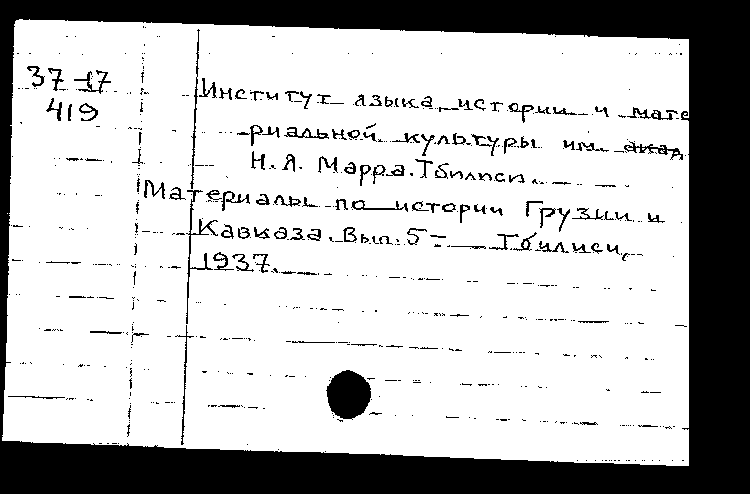 37-17
419
Институт языка, истории и мате
-риальной культуры им. акад.
Н. Я. Марра. Тбилиси.
Материалы по истории Грузии и
Кавказа. Вып. 5- Тбилиси,
1937.